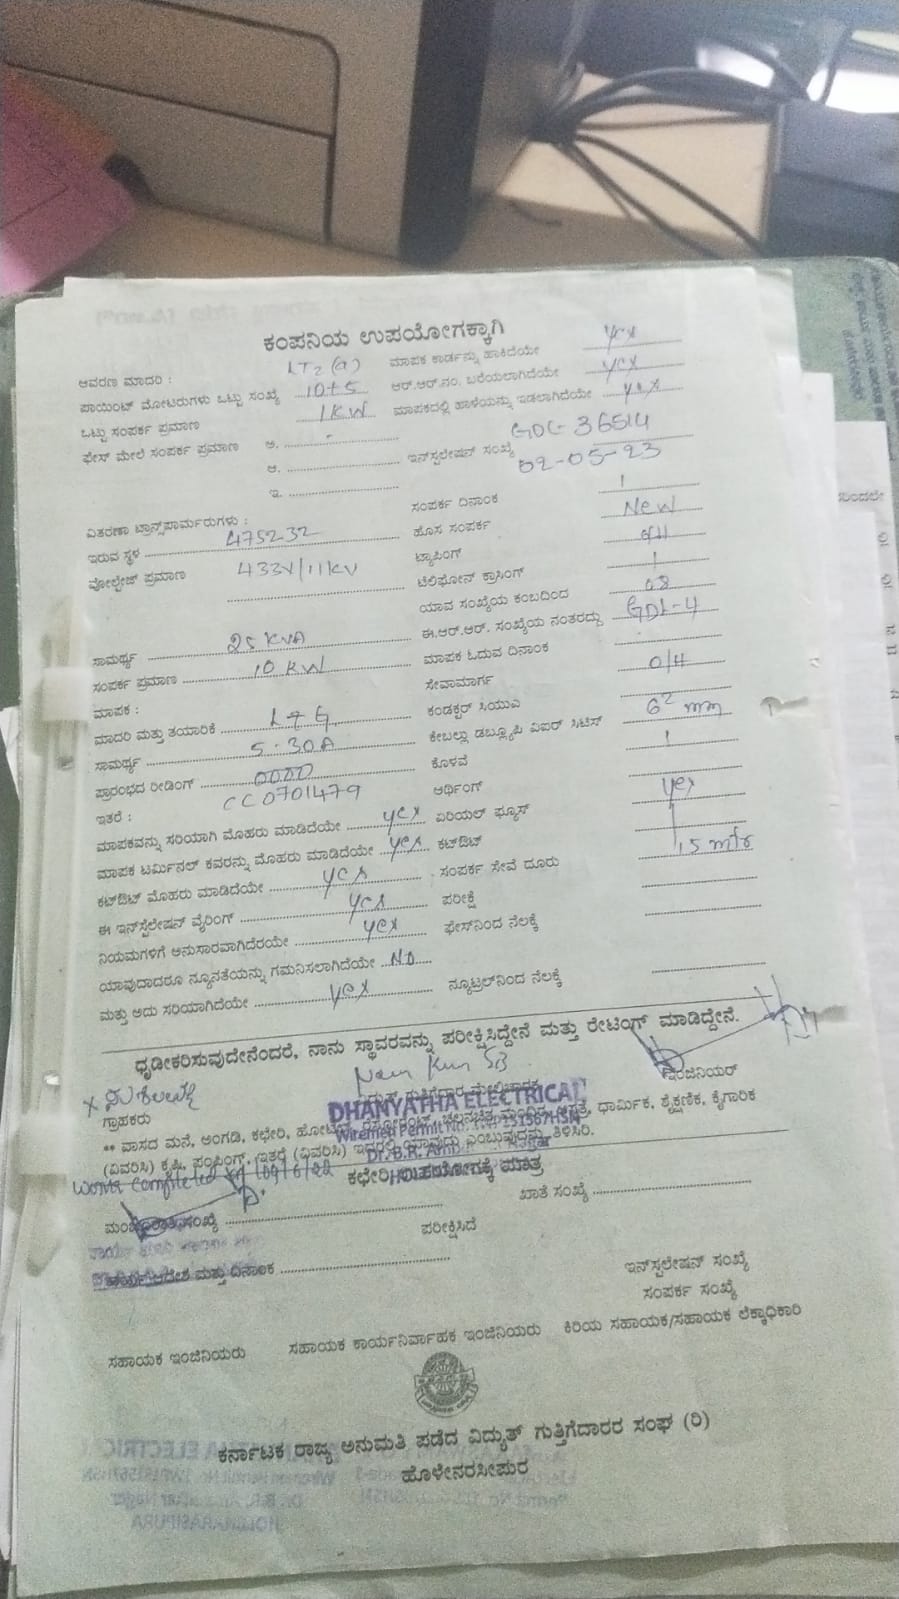 ಕಂಪನಿಯ ಉಪಯೋಗಕ್ಕಾಗಿ
ಆವರಣ ಮಾದರಿ : LT2 (a) ಮಾಪಕ ಕಾರ್ಡನ್ನು ಹಾಕಿದೆಯೇ yes
ಪಾಯಿಂಟ್ ಮೋಟರುಗಳು ಒಟ್ಟು ಸಂಖ್ಯೆ 10+5 ಆರ್.ಆರ್.ನಂ. ಬರೆಯಲಾಗಿದೆಯೇ yes
ಒಟ್ಟು ಸಂಪರ್ಕ ಪ್ರಮಾಣ 1KW ಮಾಪಕದಲ್ಲಿ ಹಾಳೆಯನ್ನು ಇಡಲಾಗಿದೆಯೇ yes
ಫೇಸ್ ಮೇಲೆ ಸಂಪರ್ಕ ಪ್ರಮಾಣ ಅ. - ಇನ್‌ಸ್ಪಲೇಷನ್ ಸಂಖ್ಯೆ GDL-36514
ಆ. 02-05-23
ಇ.
ಸಂಪರ್ಕ ದಿನಾಂಕ
ವಿತರಣಾ ಟ್ರಾನ್ಸ್‌ಪಾರ್ಮರುಗಳು : ಹೊಸ ಸಂಪರ್ಕ New
ಇರುವ ಸ್ಥಳ 475232 ಟ್ಯಾಪಿಂಗ್
ವೋಲ್ಟೇಜ್ ಪ್ರಮಾಣ 433V/11KV ಟೆಲಿಫೋನ್ ಕ್ರಾಸಿಂಗ್
ಯಾವ ಸಂಖ್ಯೆಯ ಕಂಬದಿಂದ 08
ಸಾಮರ್ಥ್ಯ 25 KVA ಈ.ಆರ್.ಆರ್. ಸಂಖ್ಯೆಯ ನಂತರದ್ದು GDL-4
ಸಂಪರ್ಕ ಪ್ರಮಾಣ 10 KW ಮಾಪಕ ಓದುವ ದಿನಾಂಕ
ಮಾಪಕ : ಸೇವಾಮಾರ್ಗ O/H
ಮಾದರಿ ಮತ್ತು ತಯಾರಿಕೆ L&G ಕಂಡಕ್ಟರ್ ಸಿಯುವಿ
ಸಾಮರ್ಥ್ಯ 5-30A ಕೇಬಲ್ಲು ಡಬ್ಲ್ಯೂಪಿ ವಿಐರ್ ಸಿಟಿಸ್ 6² mm
ಪ್ರಾರಂಭದ ರೀಡಿಂಗ್ 0000 ಕೊಳವೆ
ಇತರೆ : CC0701479 ಆರ್ಥಿಂಗ್ yes
ಮಾಪಕವನ್ನು ಸರಿಯಾಗಿ ಮೊಹರು ಮಾಡಿದೆಯೇ yes ಏರಿಯಲ್ ಫ್ಯೂಸ್
ಮಾಪಕ ಟರ್ಮಿನಲ್ ಕವರನ್ನು ಮೊಹರು ಮಾಡಿದೆಯೇ yes ಕಟ್‌ಔಟ್
ಕಟ್‌ಔಟ್ ಮೊಹರು ಮಾಡಿದೆಯೇ yes ಸಂಪರ್ಕ ಸೇವೆ ದೂರು 15 mtr
ಈ ಇನ್‌ಸ್ಪೆಲೇಷನ್ ವೈರಿಂಗ್ yes ಪರೀಕ್ಷೆ
ನಿಯಮಗಳಿಗೆ ಅನುಸಾರವಾಗಿದೆರಯೇ yes ಫೇಸ್‌ನಿಂದ ನೆಲಕ್ಕೆ
ಯಾವುದಾದರೂ ನ್ಯೂನತೆಯನ್ನು ಗಮನಿಸಲಾಗಿದೆಯೇ NO
ಮತ್ತು ಅದು ಸರಿಯಾಗಿದೆಯೇ yes ನ್ಯೂಟ್ರಲ್‌ನಿಂದ ನೆಲಕ್ಕೆ
ಧೃಡೀಕರಿಸುವುದೇನೆಂದರೆ, ನಾನು ಸ್ಥಾವರವನ್ನು ಪರೀಕ್ಷಿಸಿದ್ದೇನೆ ಮತ್ತು ರೇಟಿಂಗ್ ಮಾಡಿದ್ದೇನೆ.
ಗ್ರಾಹಕರು ಇಂಜಿನಿಯರ್
DHANYATHA ELECTRICAL
Wiremen Permit No.
** ವಾಸದ ಮನೆ, ಅಂಗಡಿ, ಕಛೇರಿ, ಧಾರ್ಮಿಕ, ಶೈಕ್ಷಣಿಕ, ಕೈಗಾರಿಕ
(ವಿವರಿಸಿ) ಕೃಷಿ, ಪಂಪಿಂಗ್, ಇತರೆ (ವಿವರಿಸಿ) ಇದರಲ್ಲಿ ಯಾವುದು ಎಂಬುವುದನ್ನು ತಿಳಿಸಿರಿ.
Work completed
ಕಛೇರಿ ಉಪಯೋಗಕ್ಕೆ ಮಾತ್ರ
ಮಂಜೂರಾತಿ ಸಂಖ್ಯೆ ಖಾತೆ ಸಂಖ್ಯೆ
ಪರೀಕ್ಷಿಸಿದೆ
ಕಾರ್ಯ ಆದೇಶ ಮತ್ತು ದಿನಾಂಕ
ಇನ್‌ಸ್ಪಲೇಷನ್ ಸಂಖ್ಯೆ
ಸಂಪರ್ಕ ಸಂಖ್ಯೆ
ಸಹಾಯಕ ಇಂಜಿನಿಯರು ಸಹಾಯಕ ಕಾರ್ಯನಿರ್ವಾಹಕ ಇಂಜಿನಿಯರು ಕಿರಿಯ ಸಹಾಯಕ/ಸಹಾಯಕ ಲೆಕ್ಕಾಧಿಕಾರಿ
ಕರ್ನಾಟಕ ರಾಜ್ಯ ಅನುಮತಿ ಪಡೆದ ವಿದ್ಯುತ್ ಗುತ್ತಿಗೆದಾರರ ಸಂಘ (ರಿ)
ಹೊಳೇನರಸೀಪುರ